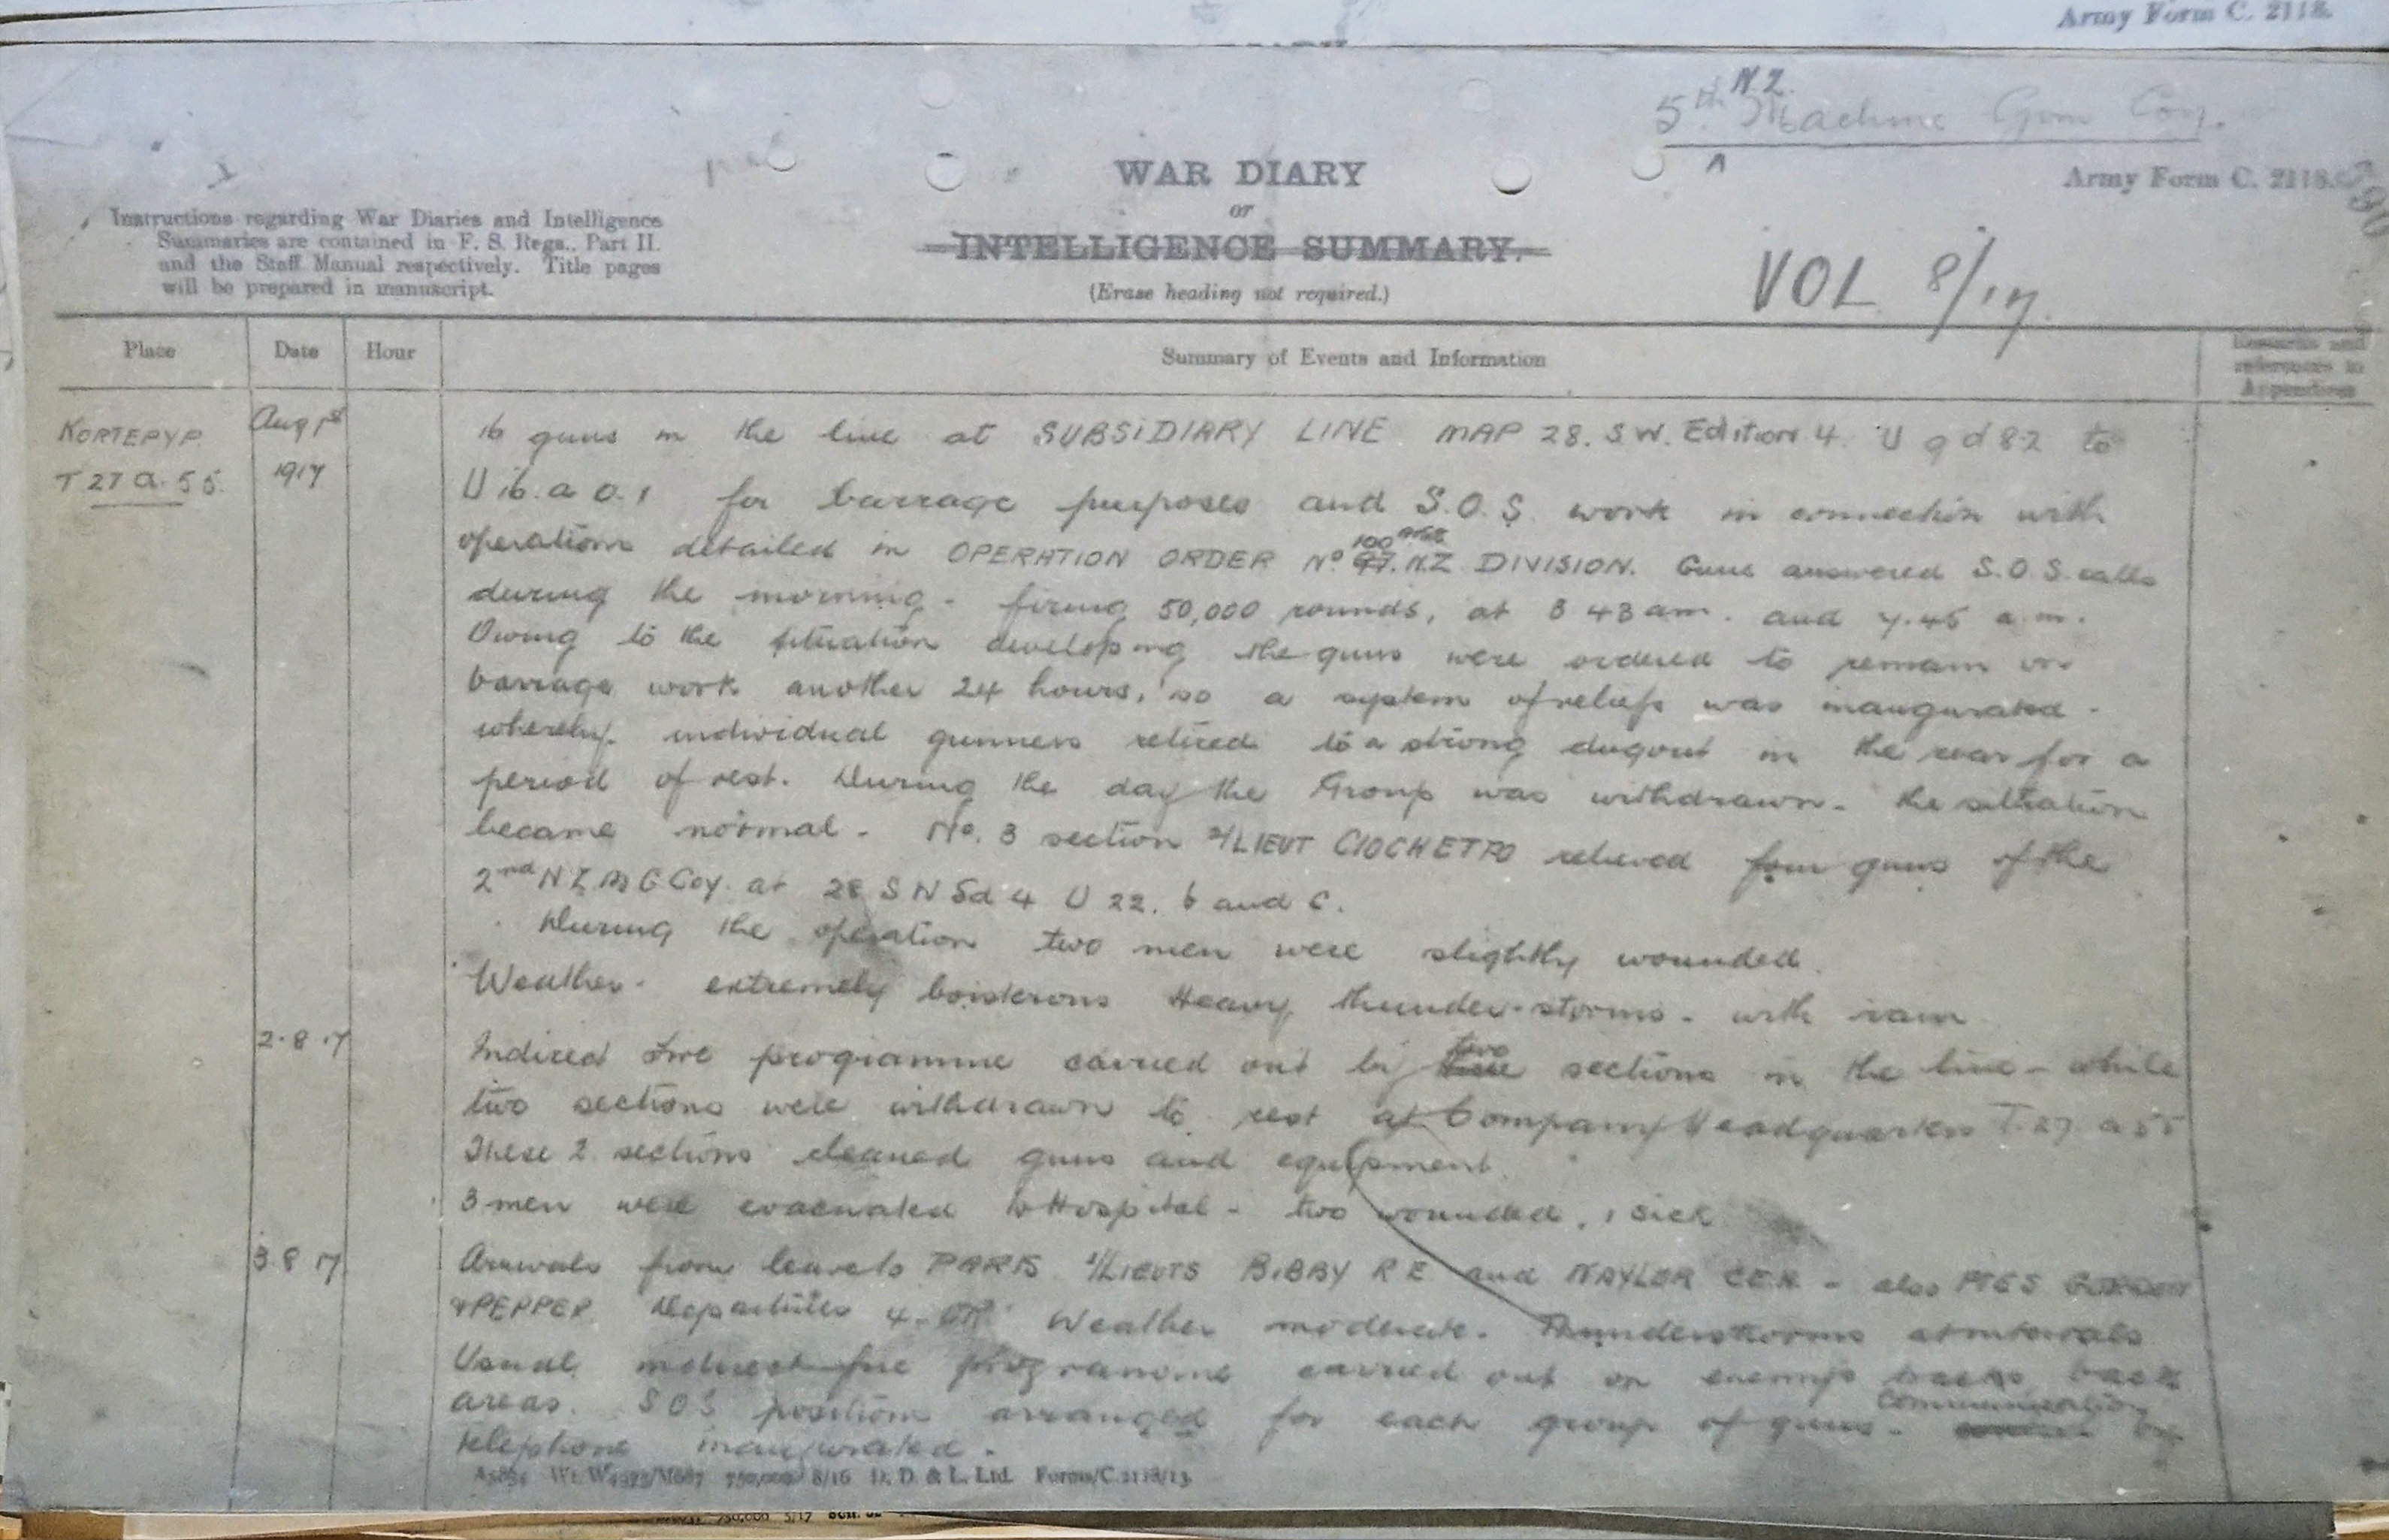 Army Form C. 2118.
5th N.Z. Machine Gun Coy.
WAR DIARY
Army Form C. 2118.
or
INTELLIGENCE SUMMARY.
(Erase heading not required.)
VOL 8/17.
Instructions regarding War Diaries and Intelligence
Summaries are contained in F. S. Regs., Part II.
and the Staff Manual respectively. Title pages
will be prepared in manuscript.
Place Date Hour Summary of Events and Information Remarks and
references to
Appendices
KORTEPYP. Aug 1st 16 guns in the line at SUBSIDIARY LINE MAP 28. S.W. Edition 4. U 9 d 8.2 to
T 27 a. 5 5. 1917 U 16. a 0.1 for barrage purposes and S.O.S. work in connection with
operations detailed in OPERATION ORDER No 97. 100 N.Z. DIVISION. Guns answered S.O.S. calls
during the morning - firing 50,000 rounds, at 3 43 am. and 7.45 a.m.
Owing to the situation developing the guns were ordered to remain on
barrage work another 24 hours, so a system of reliefs was inaugurated -
whereby individual gunners retired to a strong dugout in the rear for a
period of rest. During the day the Group was withdrawn - the situation
became normal - No. 3 section 2/LIEUT CIOCHETTO relieved four guns of the
2nd N Z M G Coy. at 28 S W Ed 4 U 22. b and c.
During the operation two men were slightly wounded.
Weather - extremely boisterous Heavy thunder-storms - with rain
2.8.17 Indirect Fire programme carried out by two sections in the line - while
two sections were withdrawn to rest at Company Headquarters T.27 a 5 5
These 2 sections cleaned guns and equipment.
3 men were evacuated to Hospital - two wounded, 1 sick
3 8 17 Arrivals from leave to PARIS 2/LIEUTS BIBBY R E and NAYLOR C.E.H. - also PTES GORDON
& PEPPER. Departures 4 OR Weather moderate. Thunderstorms at intervals
Usual indirect fire programme carried out on enemys tracks back
areas. SOS positions arranged for each group of guns - Communication by
telephone inaugurated.
750,000 8/16 D. D. & L. Ltd. Forms/C.2118/13.
750,000 5/17